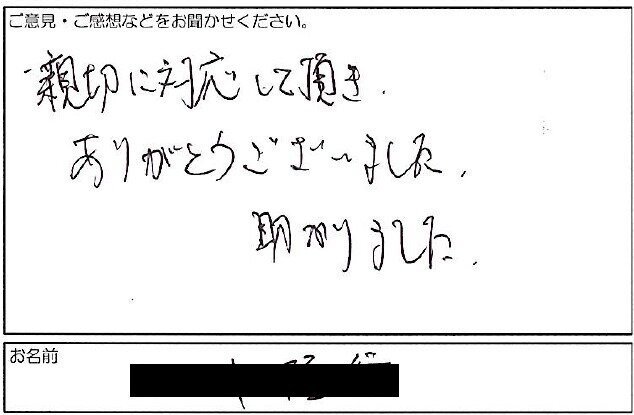 ご意見・ご感想などをお聞かせください。
親切に対応して頂き、
ありがとうございました。
助かりました。
お名前